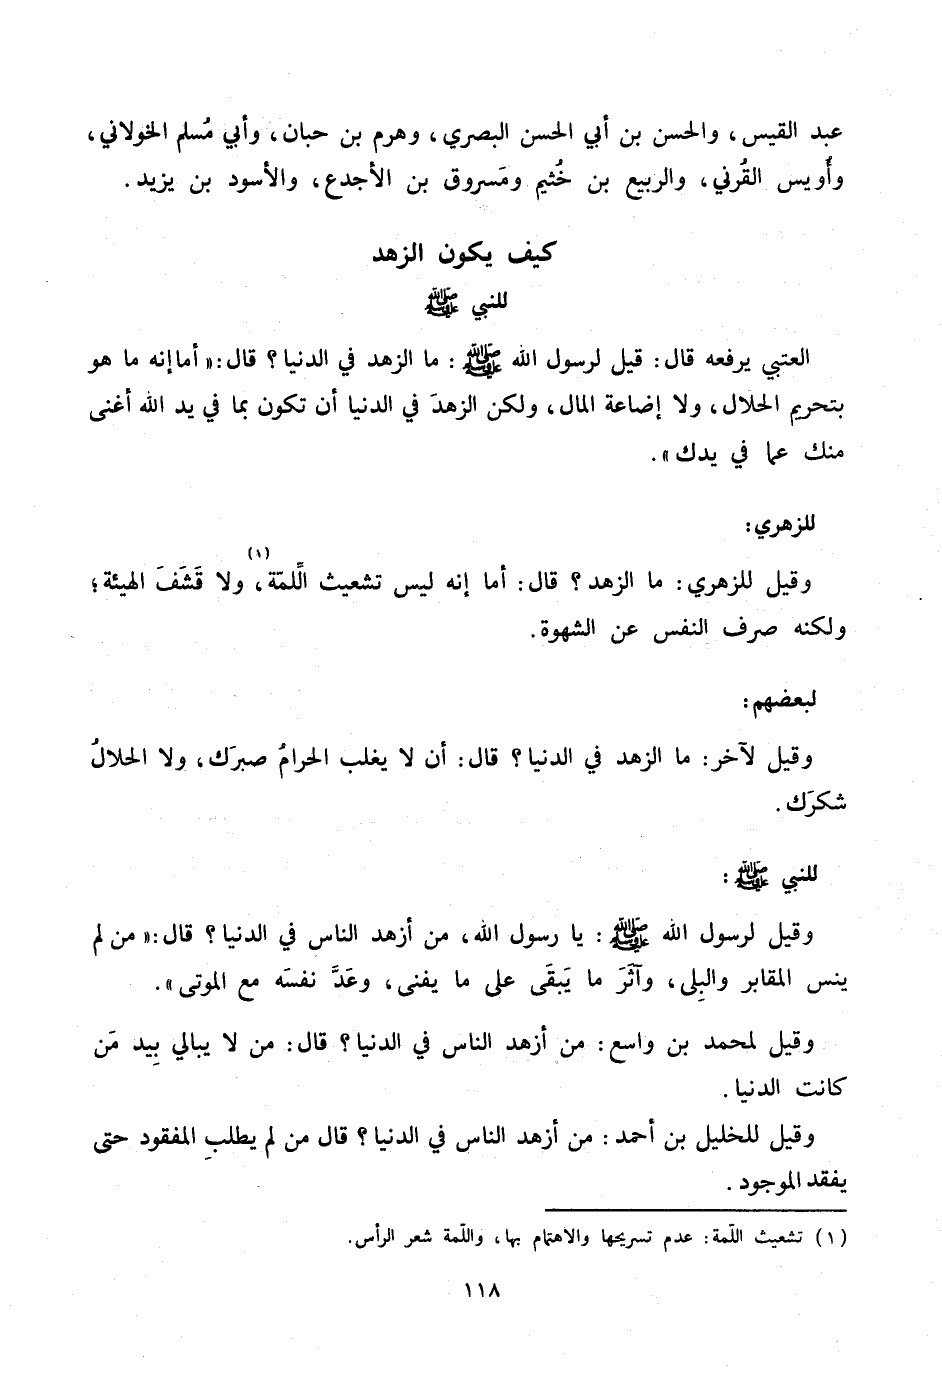 عبد القيس، والحسن بن أبي الحسن البصري، وهرم بن حبان، وأبي مُسلم الخولاني،
وأُويس القُرني، والربيع بن خُثيم ومَسروق بن الأجدع، والأسود بن يزيد.
كيف يكون الزهد
للنبي ﷺ
العتبي يرفعه قال: قيل لرسول الله ﷺ: ما الزهد في الدنيا؟ قال: «أما إنه ما هو
بتحريم الحلال، ولا إضاعة المال، ولكن الزهدَ في الدنيا أن تكون بما في يد الله أغنى
منك عما في يدك».
للزهري:
وقيل للزهري: ما الزهد؟ قال: أما إنه ليس تشعيث اللِّمّة(١)، ولا قَشَفَ الهيئة؛
ولكنه صرف النفس عن الشهوة.
لبعضهم:
وقيل لآخر: ما الزهد في الدنيا؟ قال: أن لا يغلب الحرامُ صبرَك، ولا الحلالُ
شكرَك.
للنبي ﷺ:
وقيل لرسول الله ﷺ: يا رسول الله، من أزهد الناس في الدنيا؟ قال: «من لم
ينس المقابر والبِلى، وآثَرَ ما يَبقَى على ما يفنى، وعَدَّ نفسَه مع الموتى».
وقيل لمحمد بن واسع: من أزهد الناس في الدنيا؟ قال: من لا يبالي بِيد مَن
كانت الدنيا.
وقيل للخليل بن أحمد: من أزهد الناس في الدنيا؟ قال من لم يطلبِ المفقود حتى
يفقد الموجود.
(١) تشعيث اللّمة: عدم تسريحها والاهتمام بها، واللّمة شعر الرأس.
١١٨